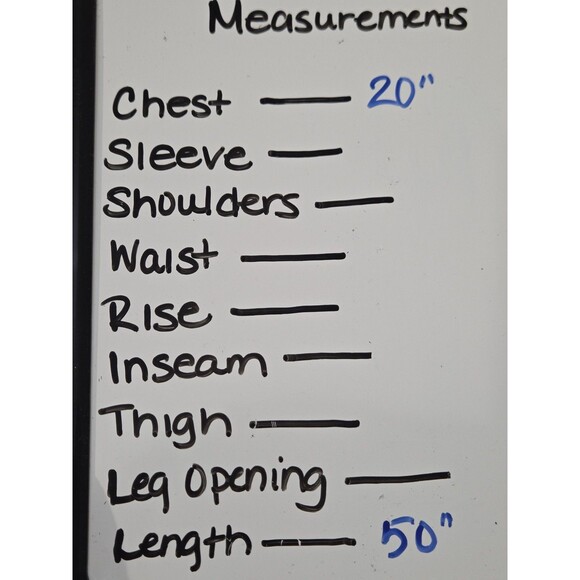 Measurements
Chest — 20"
Sleeve —
Shoulders —
Waist —
Rise —
Inseam —
Thigh —
Leg Opening —
Length — 50"